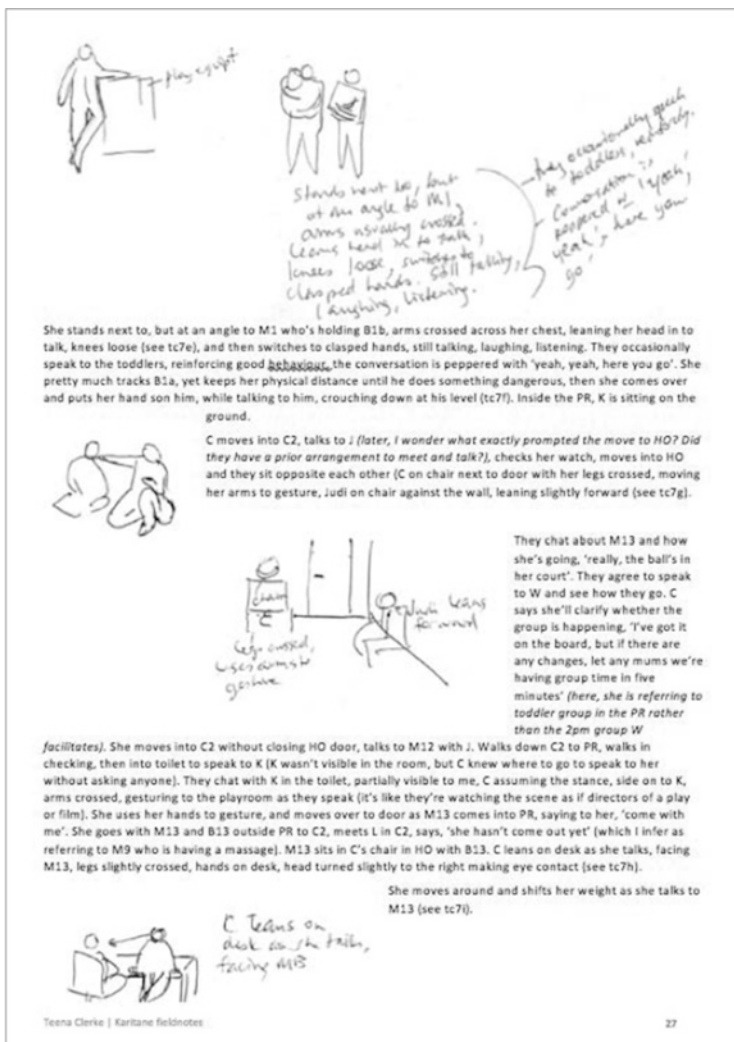 play equipt
stands next to, but
at an angle to M1,
arms usually crossed.
Leans head in to talk,
knees loose, switches to
clasped hands. Still talking,
laughing, listening.
they occasionally speak
to toddlers,
Conversation is
peppered w 'yeah,
yeah', here you
go'
She stands next to, but at an angle to M1 who's holding B1b, arms crossed across her chest, leaning her head in to
talk, knees loose (see tc7e), and then switches to clasped hands, still talking, laughing, listening. They occasionally
speak to the toddlers, reinforcing good behaviour, the conversation is peppered with 'yeah, yeah, here you go'. She
pretty much tracks B1a, yet keeps her physical distance until he does something dangerous, then she comes over
and puts her hand son him, while talking to him, crouching down at his level (tc7f). Inside the PR, K is sitting on the
ground.
C moves into C2, talks to J (later, I wonder what exactly prompted the move to HO? Did
they have a prior arrangement to meet and talk?), checks her watch, moves into HO
and they sit opposite each other (C on chair next to door with her legs crossed, moving
her arms to gesture, Judi on chair against the wall, leaning slightly forward (see tc7g).
They chat about M13 and how
she's going, 'really, the ball's in
her court'. They agree to speak
to W and see how they go. C
says she'll clarify whether the
group is happening, 'I've got it
on the board, but if there are
any changes, let any mums we're
having group time in five
minutes' (here, she is referring to
toddler group in the PR rather
than the 2pm group W
chair
C
Legs crossed,
uses arms to
gesture
Judi leans
forward
facilitates). She moves into C2 without closing HO door, talks to M12 with J. Walks down C2 to PR, walks in
checking, then into toilet to speak to K (K wasn't visible in the room, but C knew where to go to speak to her
without asking anyone). They chat with K in the toilet, partially visible to me, C assuming the stance, side on to K,
arms crossed, gesturing to the playroom as they speak (it's like they're watching the scene as if directors of a play
or film). She uses her hands to gesture, and moves over to door as M13 comes into PR, saying to her, 'come with
me'. She goes with M13 and B13 outside PR to C2, meets L in C2, says, 'she hasn't come out yet' (which I infer as
referring to M9 who is having a massage). M13 sits in C's chair in HO with B13. C leans on desk as she talks, facing
M13, legs slightly crossed, hands on desk, head turned slightly to the right making eye contact (see tc7h).
She moves around and shifts her weight as she talks to
M13 (see tc7i).
C leans on
desk as she talks,
facing M13
Teena Clerke | Karitane fieldnotes
27